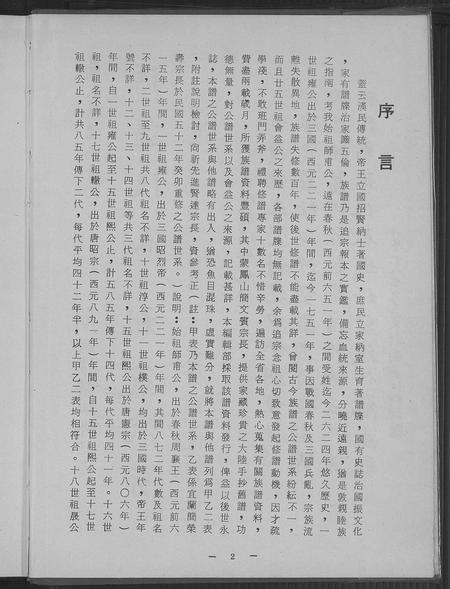 序言
蓋云漢民傳統，帝王立國招賢納士著國史，庶民立家納室生育著譜牒，國有史誌治國振文化
，家有譜牒治家識五倫，族譜乃是追宗報本之寶鑑，備忘血統來源，分曉近遠親，猶是敦親睦族
之指南，考我始祖師甫公，遠在春秋（西元前六五一年）之間受姓迄今二六二四年悠久歷史，一
世祖雍公出於三國（西元二二一年）年間，迄今一七五一年，事因戰國春秋及三國兵亂，宗族流
離失散異地，族譜失修數百年，使後世修譜不能盡載其詳，曾閱古今族譜之公譜世系紛紜不一，
而且廿五世祖會益公之來歷，各部譜牒均無記載，余為追宗念祖心切致意發起修譜動機，因才疏
學淺，不敢班門弄斧，禮聘修譜專家十數名不惜辛勞，遍訪全省各地，熱心蒐集有關族譜資料，
費盡兩載歲月，所獲族譜資料豐碩，其中蒙鳳山簡文賓宗長，提供家藏珍貴之大陸手抄舊譜，功
德無量，對公譜世系以及會益公之來源，記載甚詳，本編輯部採取該譜資料發行，俾益以後世永
誌，本譜之公譜世系與他譜略有出入，猶恐魚目混珠，虛實難分，就將本譜與他譜列為甲乙二表
，附註說明檢討，尚祈先進賢達宗長，資參考正（註：甲表乃本譜之公譜世系，乙表係宜蘭簡榮
壽宗長於民國五十二年癸卯重修之公譜世系。）說明：始祖師甫公，出於春秋周襄王（西元前六
一五年）年間，一世祖雍公，出於三國昭烈帝（西元二二一年）年間，其間八七二年代數及祖名
不詳，二世祖至九世祖共八代祖名不詳，十世祖淳公，十一世祖樸公，均出於三國時代，帝王年
號不詳，十二、十三、十四世祖等共三代祖名不詳，十五世祖熙公出於唐憲宗（西元八〇六年）
年間，自一世祖雍公起至十五世熙公止，計五八五年傳下十四代，每代平均四十一年。十六世
祖，祖名不詳，十七世祖轍公，出於唐昭宗（西元八九一年）年間，自十五世祖熙公起至十七世
祖轍公止，計共八五年傳下二代，每代平均四十二年半，以上甲乙二表均相符合。十八世祖晟公
— 2 —